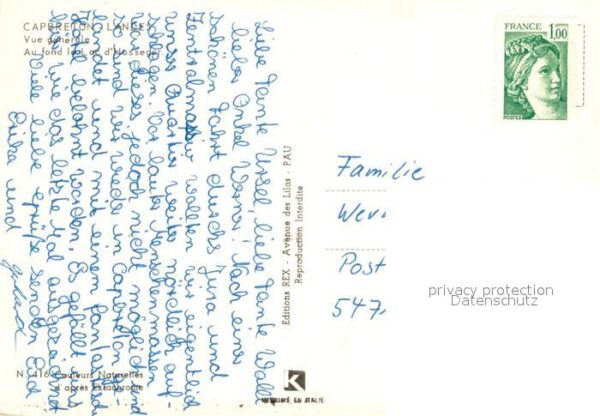 CAPBRETON LANDES
Vue générale
Au fond le Lac d'Hossegor
Liebe Tante Ursel, liebe Tante Wally
lieber Onkel Werner! Nach einer
schönen Fahrt durchs Jura und
Zentralmassiv wollten wir eigentlich
unser Quartier weiter nördlich auf-
schlagen. Vor lauter Menschenmassen
war dieses jedoch nicht möglich und
so sind wir wieder in Capbreton ge-
landet und mit einem
belohnt worden. Es gefällt uns
hier wie das letzte Mal ausgezeichnet
Viele liebe Grüße senden Euch
Erika und
N. 416 Couleurs Naturelles
d'après Ektachrome
Editions REX - Avenue des Lilas - PAU
Reproduction Interdite
K
IMPRIMÉ EN ITALIE
FRANCE
1,00
POSTES
Familie
Wer
Post
547
privacy protection
Datenschutz